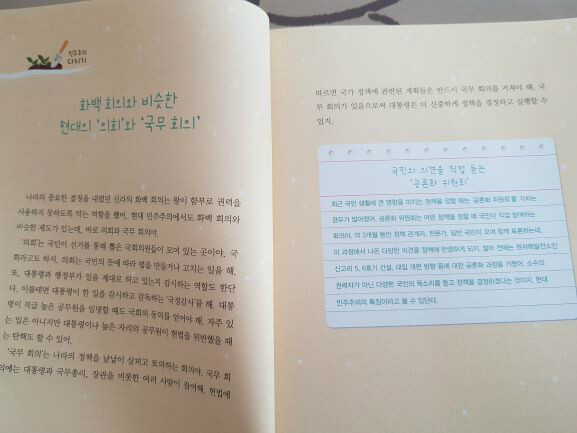 민주주의
다지기
화백 회의와 비슷한
현대의 '의회'와 '국무 회의'
나라의 중요한 결정을 내렸던 신라의 화백 회의는 왕이 함부로 권력을
사용하지 못하도록 막는 역할을 했어. 현대 민주주의에서도 화백 회의와
비슷한 제도가 있는데, 바로 의회와 국무 회의야.
'의회'는 국민이 선거를 통해 뽑은 국회의원들이 모여 있는 곳이야. 국
회라고도 하지. 의회는 국민의 뜻에 따라 법을 만들거나 고치는 일을 해.
또, 대통령과 행정부가 일을 제대로 하고 있는지 감시하는 역할도 한단
다. 이를테면 대통령이 한 일을 감시하고 감독하는 '국정감사'를 해. 대통
령이 직급 높은 공무원을 임명할 때도 국회의 동의를 얻어야 해. 자주 있
는 일은 아니지만 대통령이나 높은 자리의 공무원이 헌법을 위반했을 때
는 탄핵도 할 수 있어.
'국무 회의'는 나라의 정책을 낱낱이 살피고 토의하는 회의야. 국무 회
의에는 대통령과 국무총리, 장관을 비롯한 여러 사람이 참여해. 헌법에
따르면 국가 정책에 관련된 계획들은 반드시 국무 회의를 거쳐야 해. 국
무 회의가 있음으로써 대통령은 더 신중하게 정책을 결정하고 실행할 수
있지.
국민의 의견을 직접 듣는
'공론화 위원회'
최근 국민 생활에 큰 영향을 미치는 정책을 정할 때는 '공론화 위원회'를 거치는
경우가 많아졌어. 공론화 위원회는 어떤 정책을 정할 때 국민이 직접 참여하는
회의야. 약 3개월 동안 정책 관계자, 전문가, 일반 국민이 모여 함께 토론하는데,
이 과정에서 나온 다양한 의견을 정책에 반영하게 되지. 얼마 전에는 원자력발전소인
신고리 5, 6호기 건설, 대입 개편 방향 등에 대한 공론화 과정을 거쳤어. 소수의
권력자가 아닌 다양한 국민의 목소리를 듣고 정책을 결정하겠다는 것이지. 현대
민주주의의 특징이라고 볼 수 있단다.